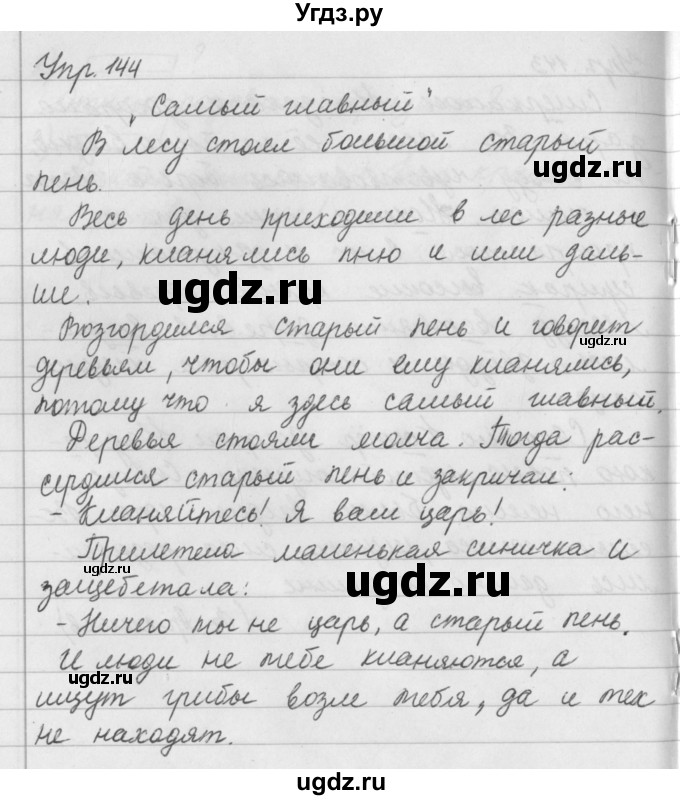 Угдз.ру
Упр. 144
„Самый главный"
В лесу стоял большой старый
пень.
Весь день приходили в лес разные
люди, кланялись пню и шли даль-
ше.
Возгордился старый пень и говорит
деревьям, чтобы они ему кланялись,
потому что я здесь самый главный.
Деревья стояли молча. Тогда рас-
сердился старый пень и закричал:
- Кланяйтесь! Я ваш царь!
Прилетела маленькая синичка и
защебетала:
- Ничего ты не царь, а старый пень.
И люди не тебе кланяются, а
ищут грибы возле тебя, да и тех
не находят.
ugdz.ru
ugdz.ru
ugdz.ru
ugdz.ru
ugdz.ru
ugdz.ru
ugdz.ru
ugdz.ru